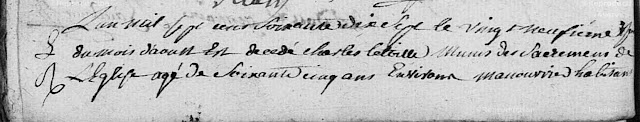 L'an mil sept cens Soixante dix Sept le vingt neufieme
du mois daoust Est decedé charles Munis des Sacremens de
L'Eglise agé de Soixante cinq ans Environs manouvrier habitant